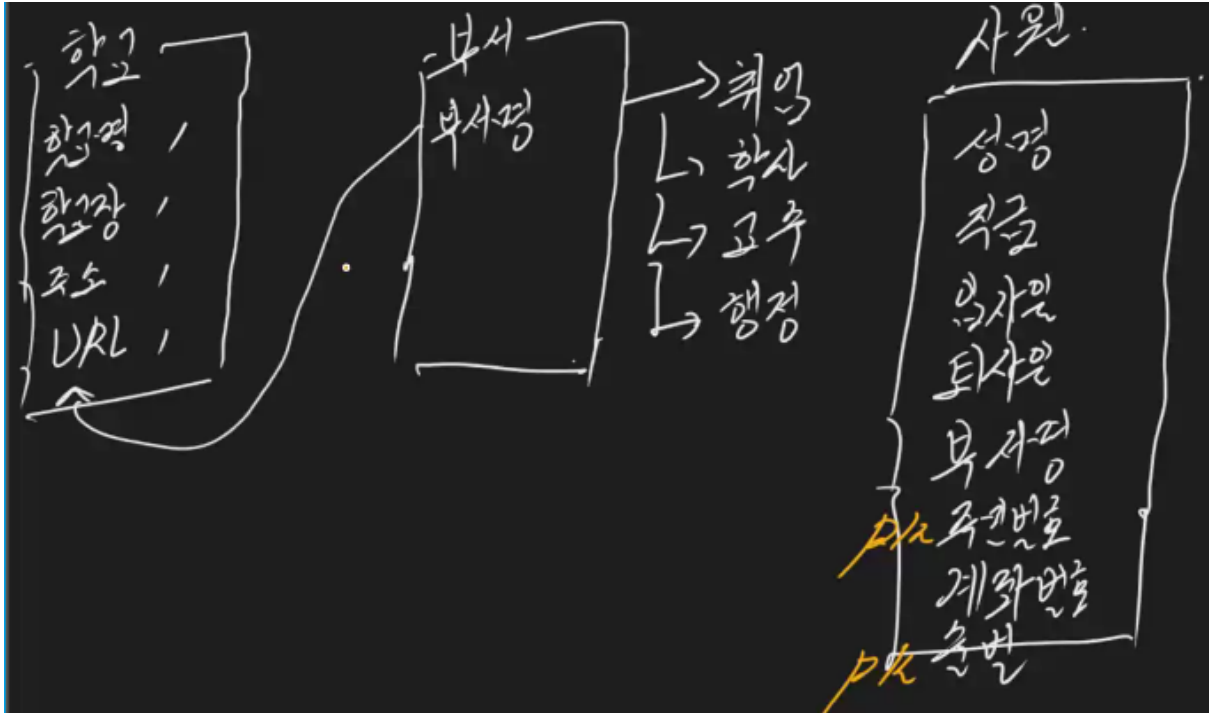 학교
학교명
학교장
주소
URL
부서
부서명
취업
학사
교무
행정
사원
성명
직급
입사일
퇴사일
부서명
주민번호
계좌번호